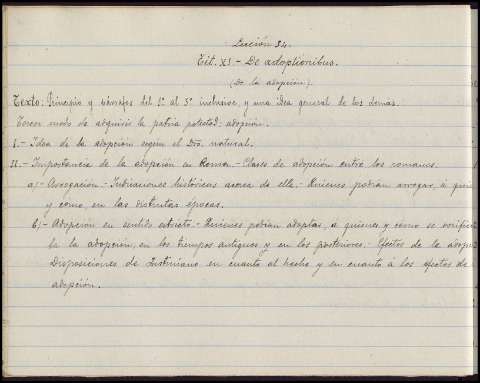 Lección 34.
Tit. XI - De adoptionibus.
(De la adopción).
Texto: Principio y párrafos del 1º al 3º inclusive, y una idea general de los demas.
Tercer modo de adquirir la patria potestad: adopción.
I.- Idea de la adopción según el Dro. natural.
II.- Importancia de la adopción en Roma.- Clases de adopción entre los romanos.
a)- Arrogación.- Indicaciones históricas acerca de ella.- Quienes podian arrogar, á quie
y cómo, en las distintas épocas.
b)- Adopción en sentido estricto.- Quienes podian adoptar, á quienes y cómo se verifica
ba la adopción, en los tiempos antiguos y en los posteriores.- Efectos de la adop
Disposiciones de Justiniano en cuanto al hecho y en cuanto á los efectos de
adopción.